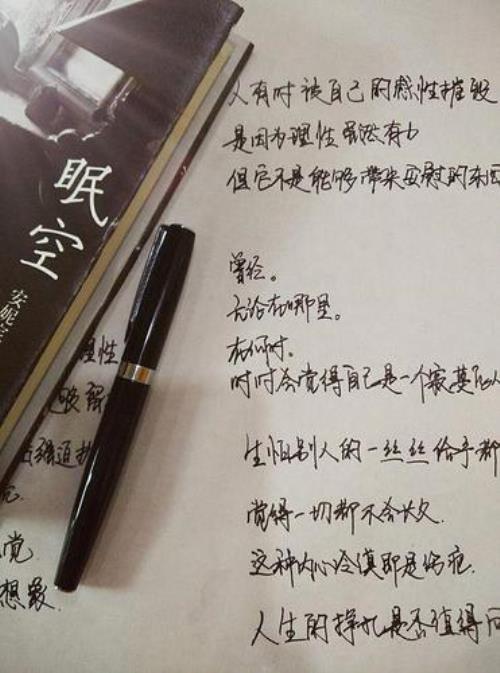 眠空
安妮宝
人有时被自己的感性摧毁
是因为理性虽然有力
但它不是能够带来安慰的东西
曾经。
无论在哪里。
在何时.
时时会觉得自己是一个寂寞的人
生怕别人的一丝丝给予都
觉得一切都不会长久.
这种内心冷漠即是伤疤.
人生的挣扎是否值得同
理性
够
强迫
觉
想象.